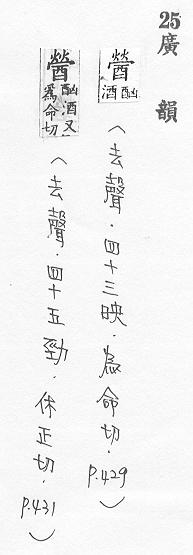 25 廣韻
醟 酗酒 (去聲．四十三映．為命切．p.429)
醟 酗酒又為命切 (去聲．四十五勁．休正切．p.431)